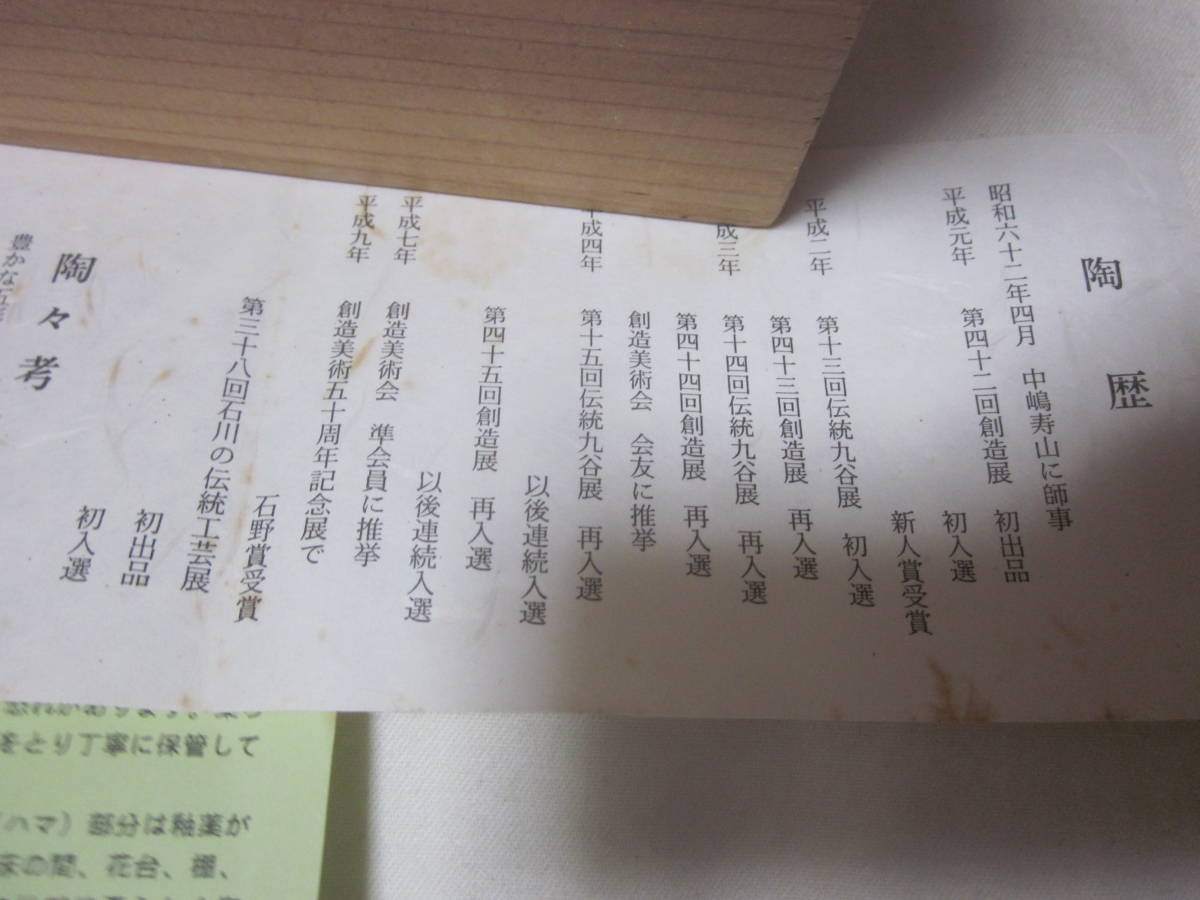 陶歴
昭和六十二年四月 中嶋寿山に師事
平成元年 第四十二回創造展 初出品
初入選
新人賞受賞
平成二年 第十三回伝統九谷展 初入選
第四十三回創造展 再入選
成三年 第十四回伝統九谷展 再入選
第四十四回創造展 再入選
創造美術会 会友に推挙
平成四年 第十五回伝統九谷展 再入選
以後連続入選
第四十五回創造展 再入選
以後連続入選
平成七年 創造美術会 準会員に推挙
平成九年 創造美術五十周年記念展で
石野賞受賞
第三十八回石川の伝統工芸展
初出品
初入選
陶々考
豊かな五彩
をとり丁寧に保管して
(ハマ)部分は釉薬が
床の間、花台、棚、